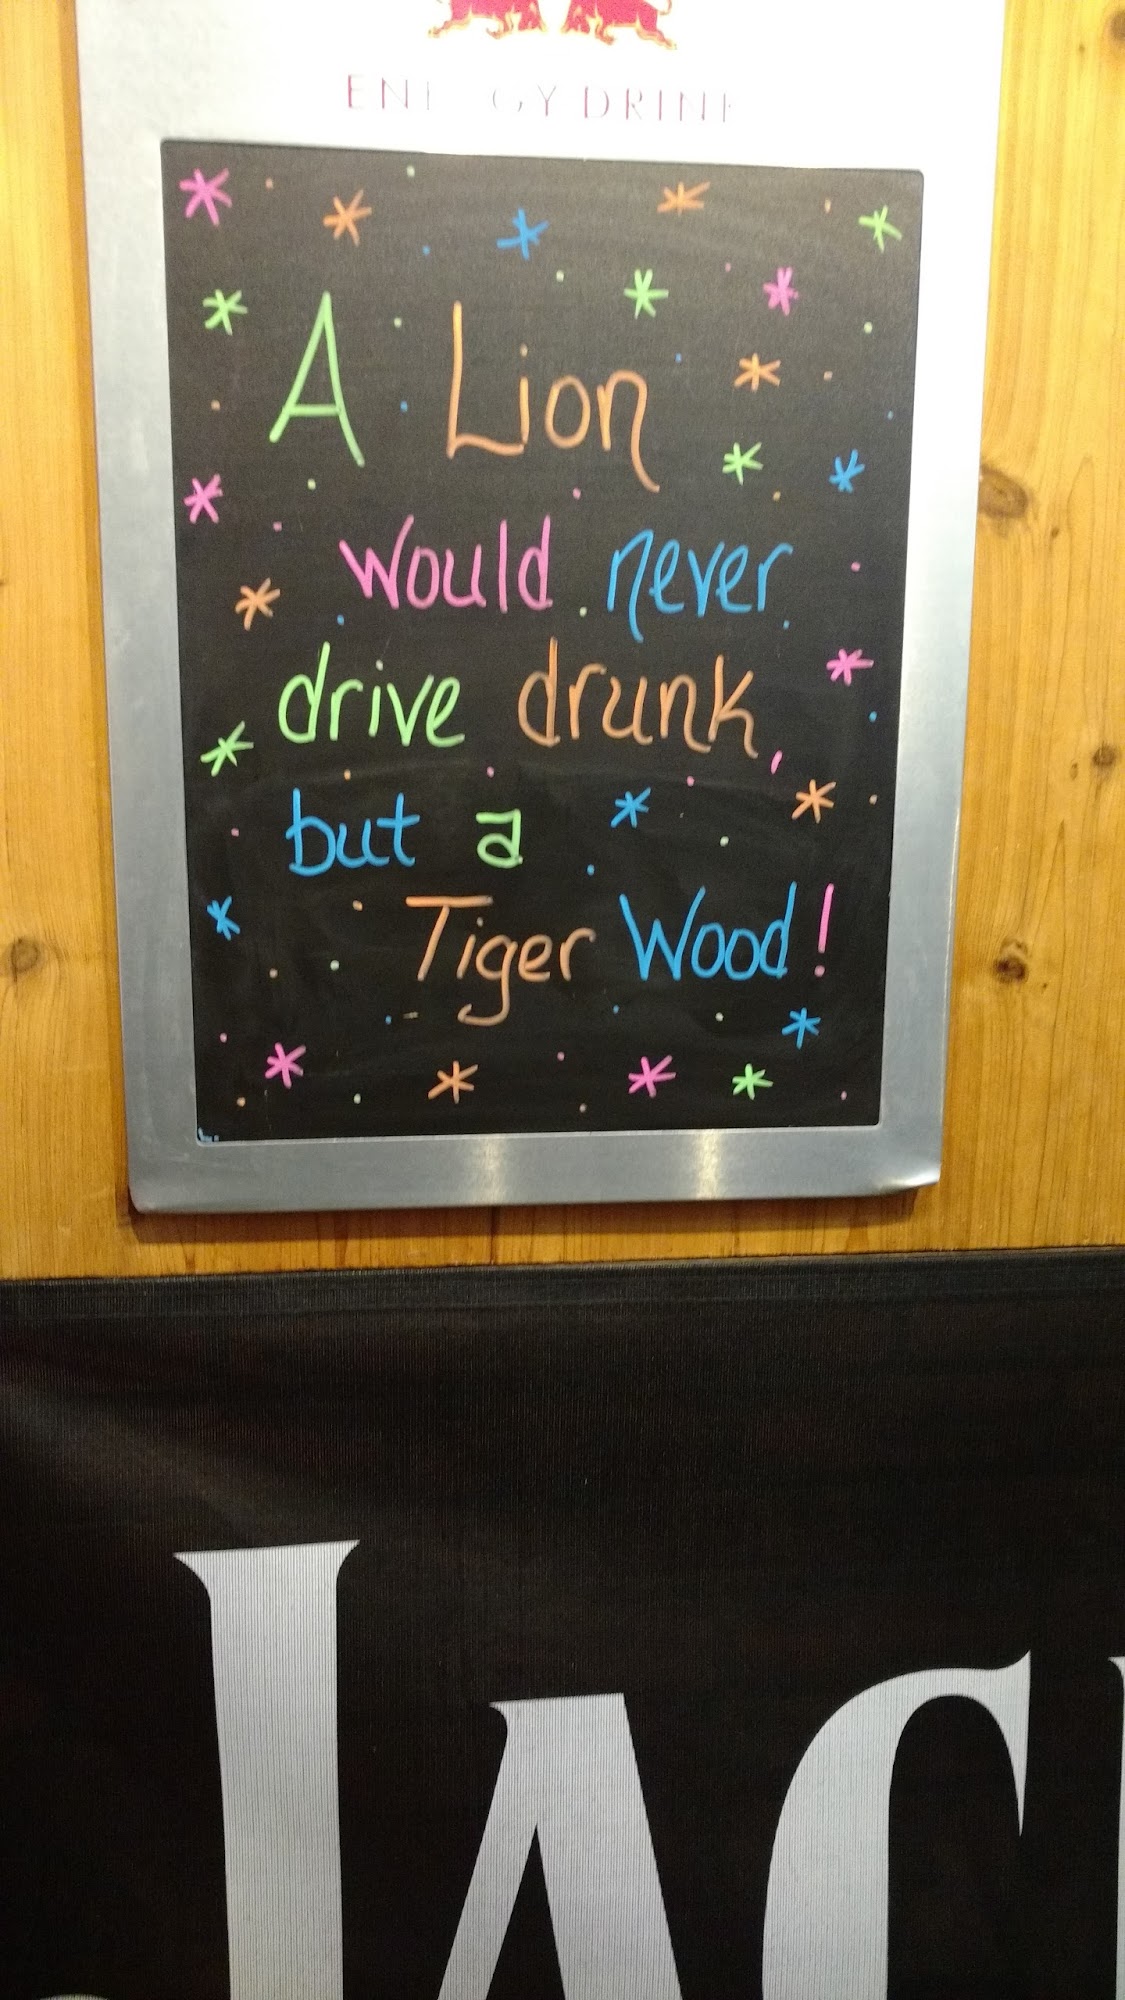 ENERGY DRINK
A Lion
would never
drive drunk,
but a
Tiger Wood!
JAC